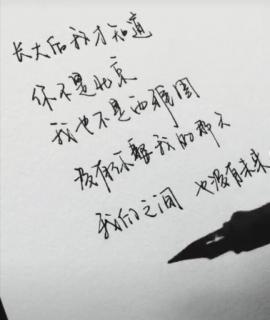 长大后我才知道
你不是北京
我也不是西雅图
没有不要我的那么
我们之间 也没有未来